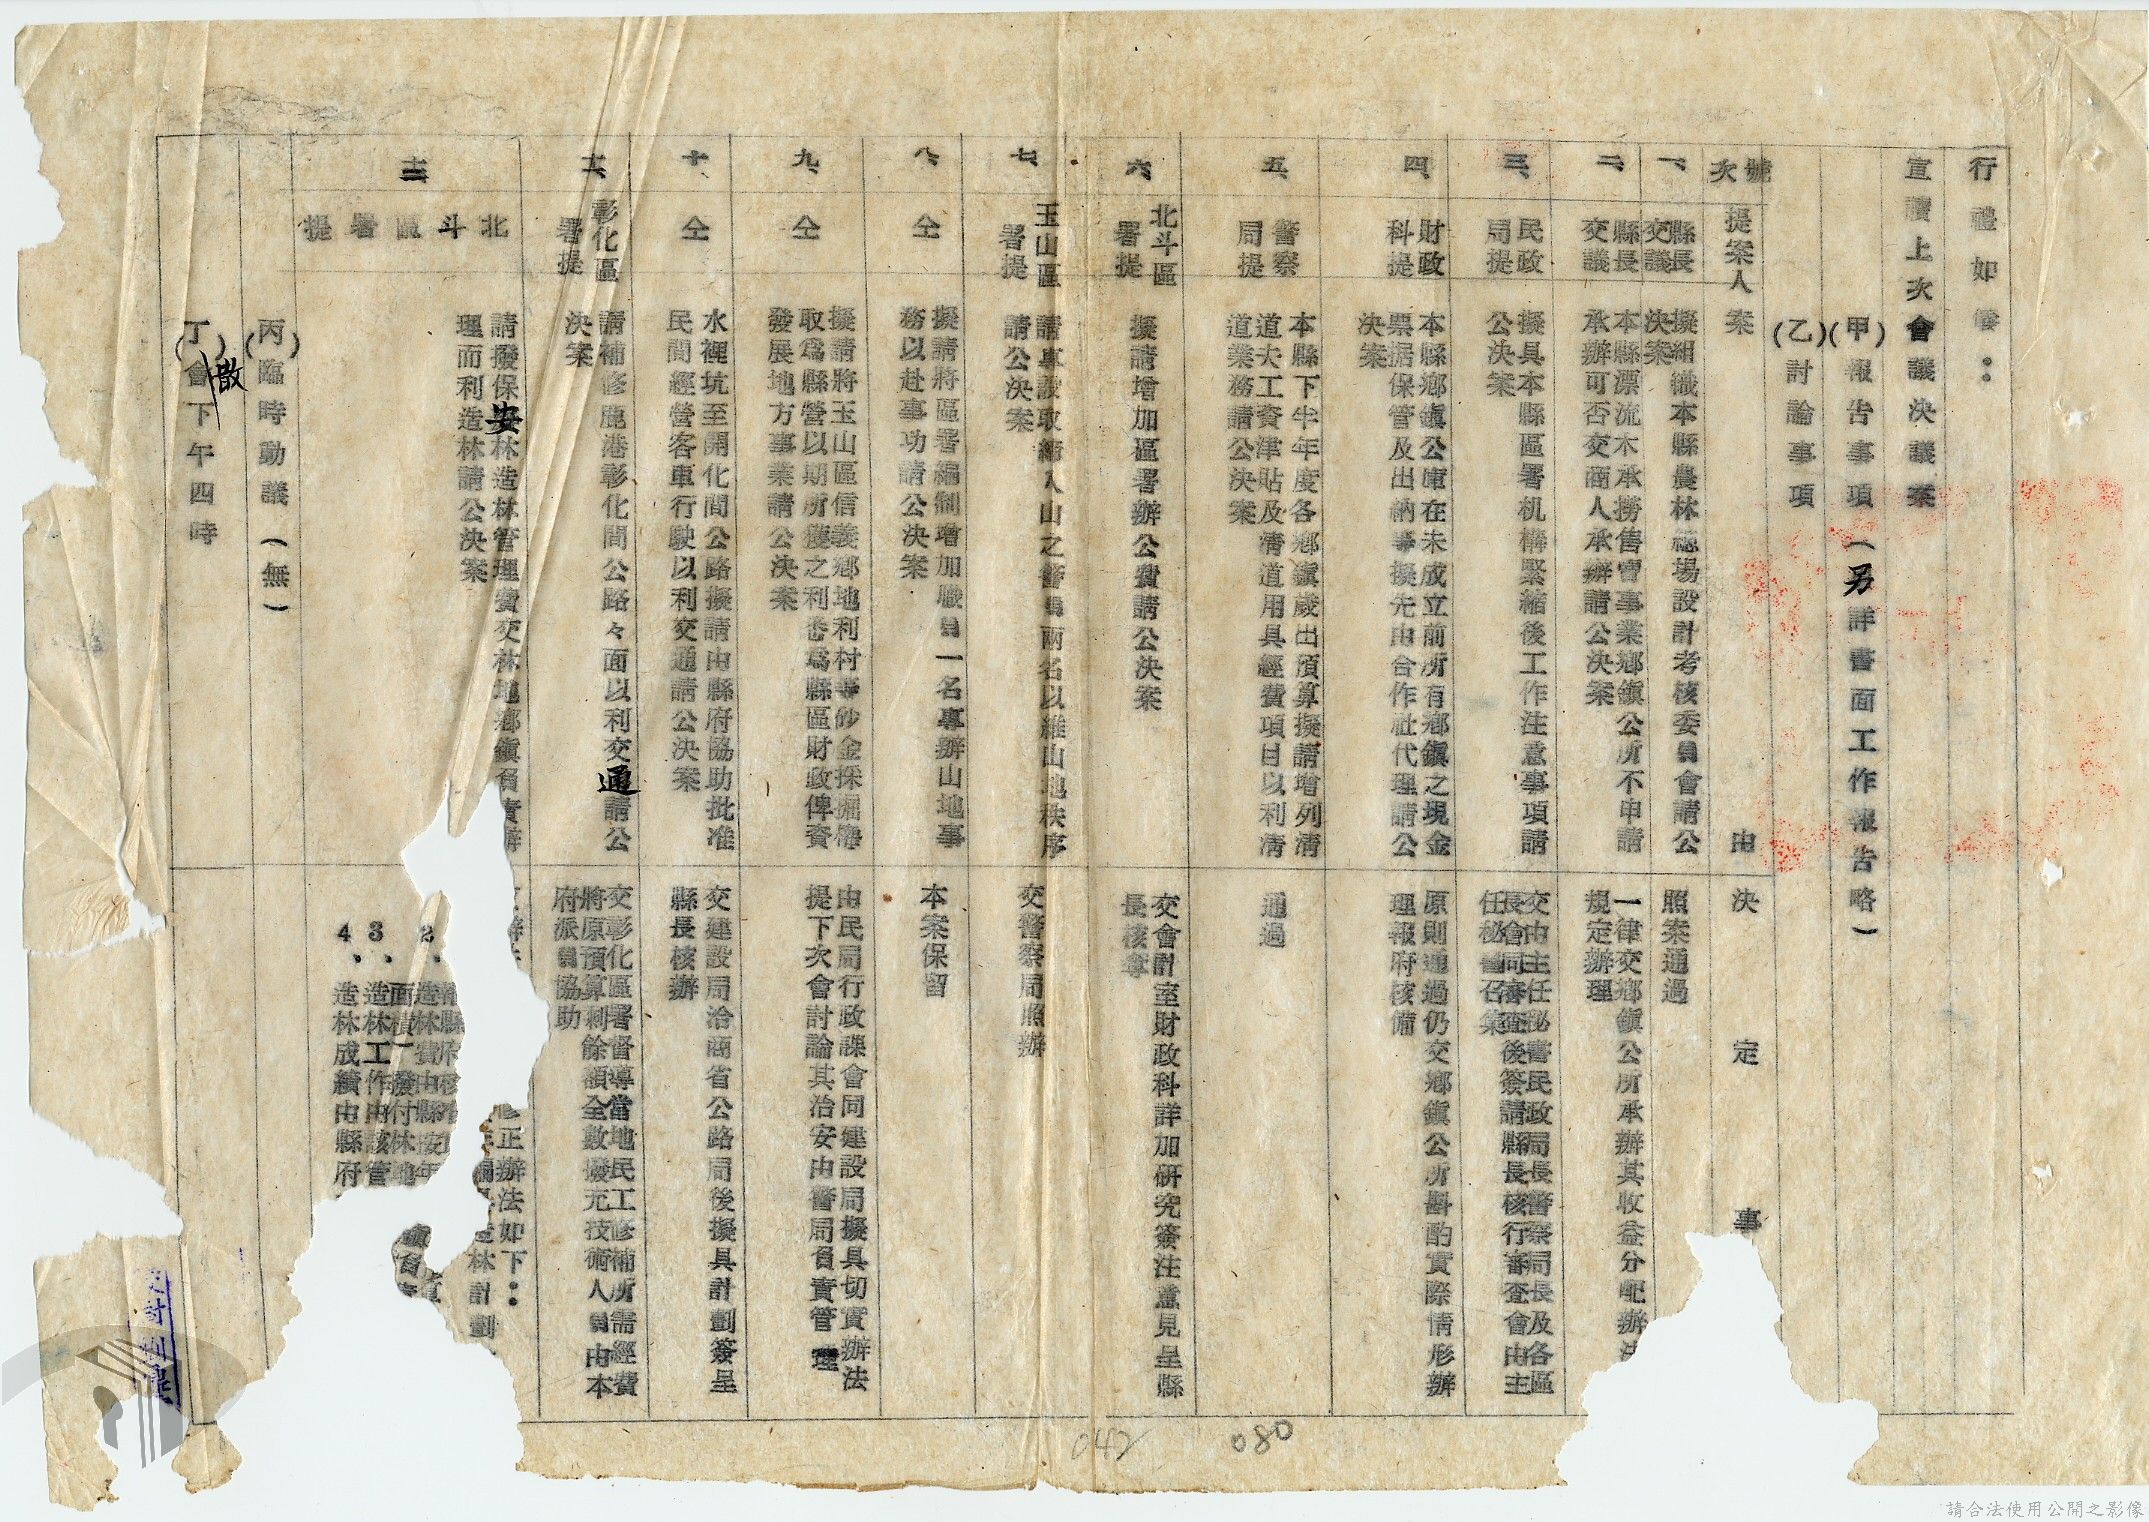 行禮如儀：
宣讀上次會議決議案
(甲)報告事項(另詳書面工作報告略)
(乙)討論事項
號次
提案人
案由
決定事
一、
縣長交議
擬組織本縣農林總場設計考核委員會請公
決案
照案通過
二、
縣長交議
本縣漂流木承撈售賣事業鄉鎮公所不申請
承辦可否交商人承辦請公決案
一律交鄉鎮公所承辦其收益分配辦法
規定辦理
三、
民政局提
擬具本縣區署机構緊縮後工作注意事項請
公決案
交由主任秘書民政局長警察局長及各區
長會同審查後簽請縣長核行審查會由主
任秘書召集
四、
財政科提
本縣鄉鎮公庫在未成立前所有鄉鎮之現金
票据保管及出納事擬先由合作社代理請公
決案
原則通過仍交鄉鎮公所斟酌實際情形辦
理報府核備
五、
警察局提
本縣下半年度各鄉鎮歲出預算擬請增列清
道夫工資津貼及清道用具經費項目以利清
道業務請公決案
通過
六、
北斗區署提
擬請增加區署辦公費請公決案
交會計室財政科詳加研究簽注意見呈縣
長核奪
七、
玉山區署提
請專設取締入山之警員兩名以維山地秩序
請公決案
交警察局照辦
八、
仝
擬請將區署編制增加職員一名專辦山地事
務以赴事功請公決案
本案保留
九、
仝
擬請將玉山區信義鄉地利村等砂金採掘權
取爲縣營以期所獲之利悉爲縣區財政俾資
發展地方事業請公決案
由民局行政課會同建設局擬具切實辦法
提下次會討論其治安由警局負責管理
十、
仝
水裡坑至開化間公路擬請由縣府協助批准
民間經營客車行駛以利交通請公決案
交建設局洽商省公路局後擬具計劃簽呈
縣長核辦
彰化區署提
請補修鹿港彰化間公路々面以利交通請公
決案
交彰化區署督導當地民工修補所需經費
將原預算剩餘額全數撥充技術人員由本
府派員協助
北斗區署提
請撥保安林造林管理費交林地鄉鎮負責辦
理而利造林請公決案
正辦法如下：
林計劃
2、造林費由縣按年
面積)發付林地
3、造林工作由該管
4、造林成績由縣府
(丙)臨時動議(無)
(丁)散會下午四時
042
080
請合法使用公開之影像